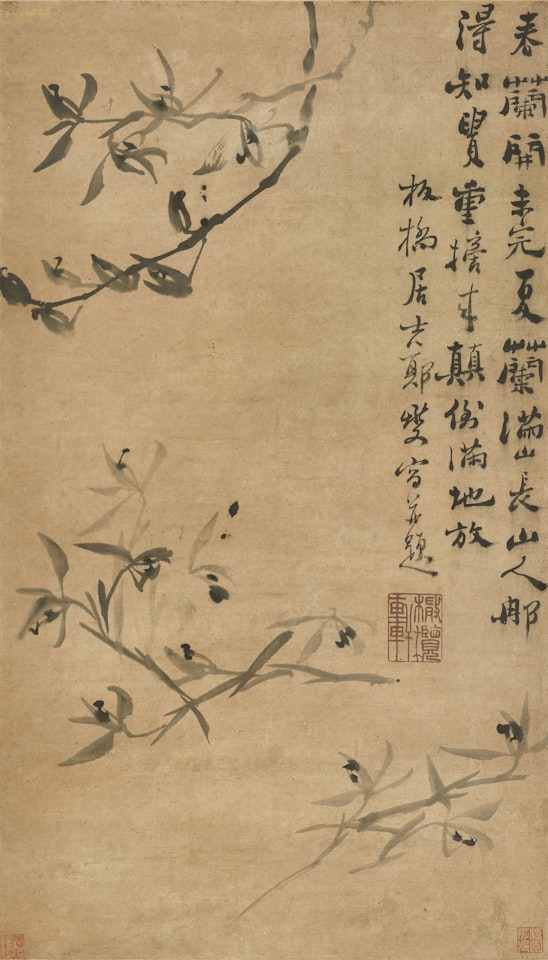 春蘭開未完夏蘭滿山長山人那
得知貴重擔来顛倒滿地放
板橋居士鄭燮寫并題